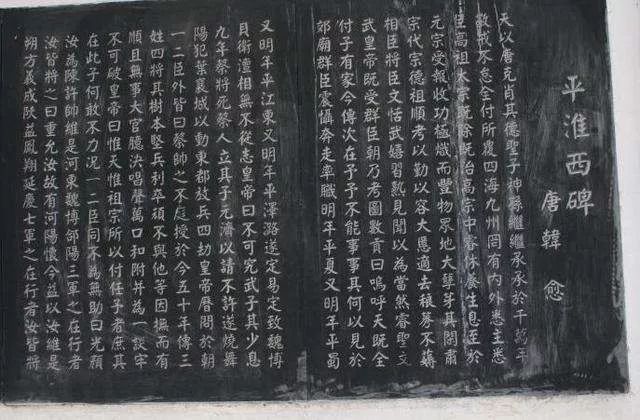 平淮西碑
唐韓愈
天以唐克肖其德聖子神孫繼繼承承於千萬年
敬戒不怠全付所覆四海九州罔有內外悉主悉
臣高祖太宗既除既治高宗中睿休養生息至於
元宗受報收功極熾而豐物眾地大孽牙其間肅
宗代宗德祖順考以勤以容大慝適去稂莠不薅
相臣將臣文恬武嬉習熟見聞以為當然睿聖文
武皇帝既受群臣朝乃考圖數貢曰嗚呼天既全
付予有家今傳次在予予不能事事其何以見於
郊廟群臣震懾奔走率職明年平夏又明年平蜀
又明年平江東又明年平澤潞遂定易定致魏博
貝衛澶相無不從志皇帝曰不可究武予其少息
九年蔡將死蔡人立其子元濟以請不許遂燒舞
陽犯葉襄城以動東都放兵四劫皇帝歷問於朝
一二臣外皆曰蔡帥之不庭授於今五十年傳三
姓四將其樹本堅兵利卒頑不與他等因撫而有
順且無事大官臆決唱聲萬口和附并為一談牢
不可破皇帝曰惟天惟祖宗所以付任予者庶其
在此予何敢不力況一二臣同不為無助曰光顏
汝為陳許帥維是河東魏博郃陽三軍之在行者
汝皆將之曰重允汝故有河陽懷今益以汝維是
朔方義成陝益鳳翔延慶七軍之在行者汝皆將